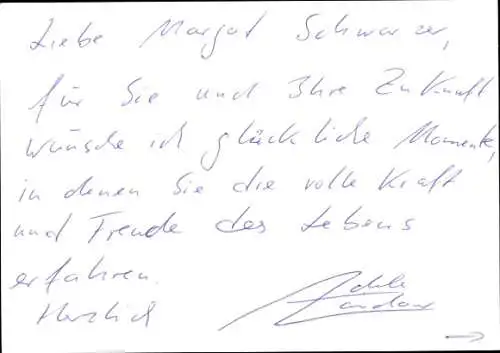 Liebe Margot Schwarzer,
für Sie und Ihre Zukunft
wünsche ich glückliche Momente,
in denen Sie die volle Kraft
und Freude des Lebens
erfahren.
Herzlich
Adele Landauer